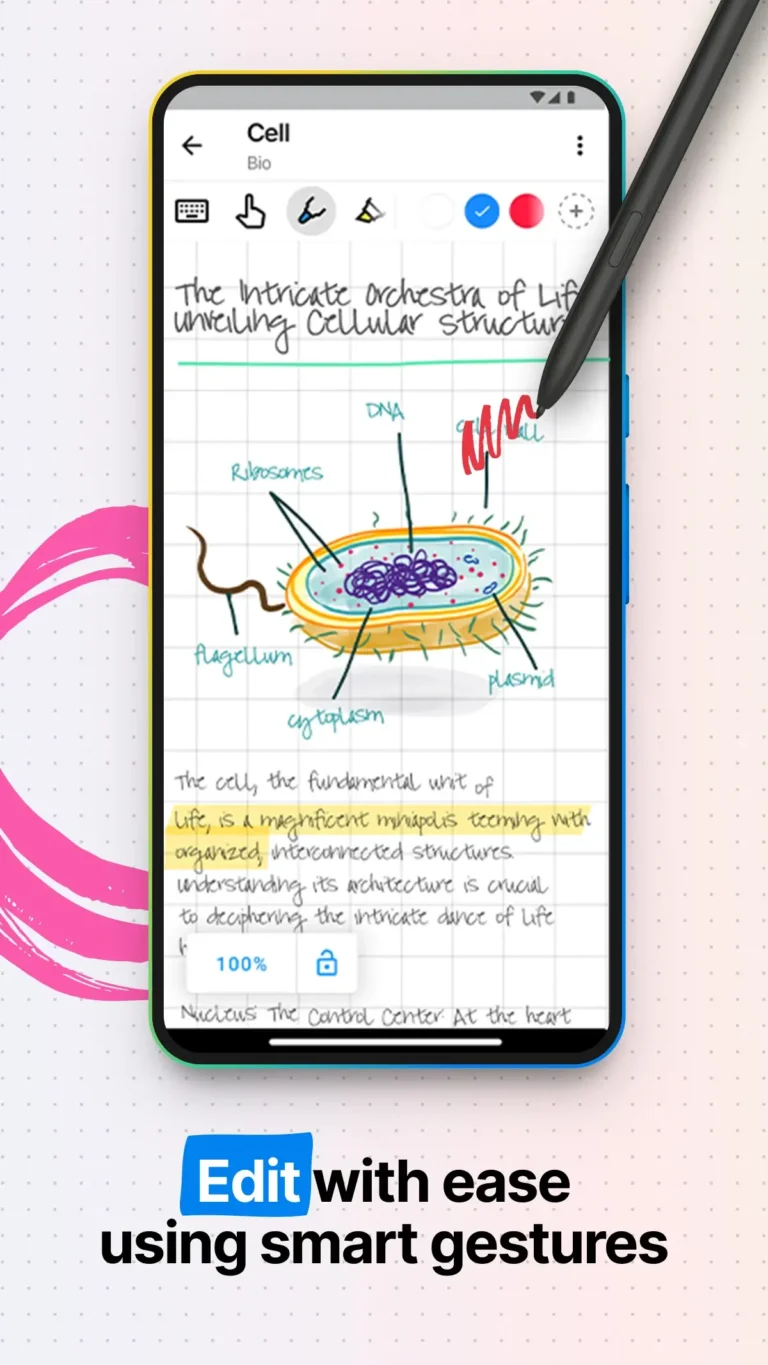 Cell
Bio
The Intricate Orchestra of Lif
unveiling Cellular structur
DNA
Cell wall
Ribosomes
flagellum
plasmid
cytoplasm
The cell, the fundamental unit of
life, is a magnificent miniapolis teeming with
organized, interconnected structures.
understanding its architecture is crucial
to deciphering the intricate dance of life
h
100%
Nucleus The Control Center: At the heart
Edit with ease
using smart gestures